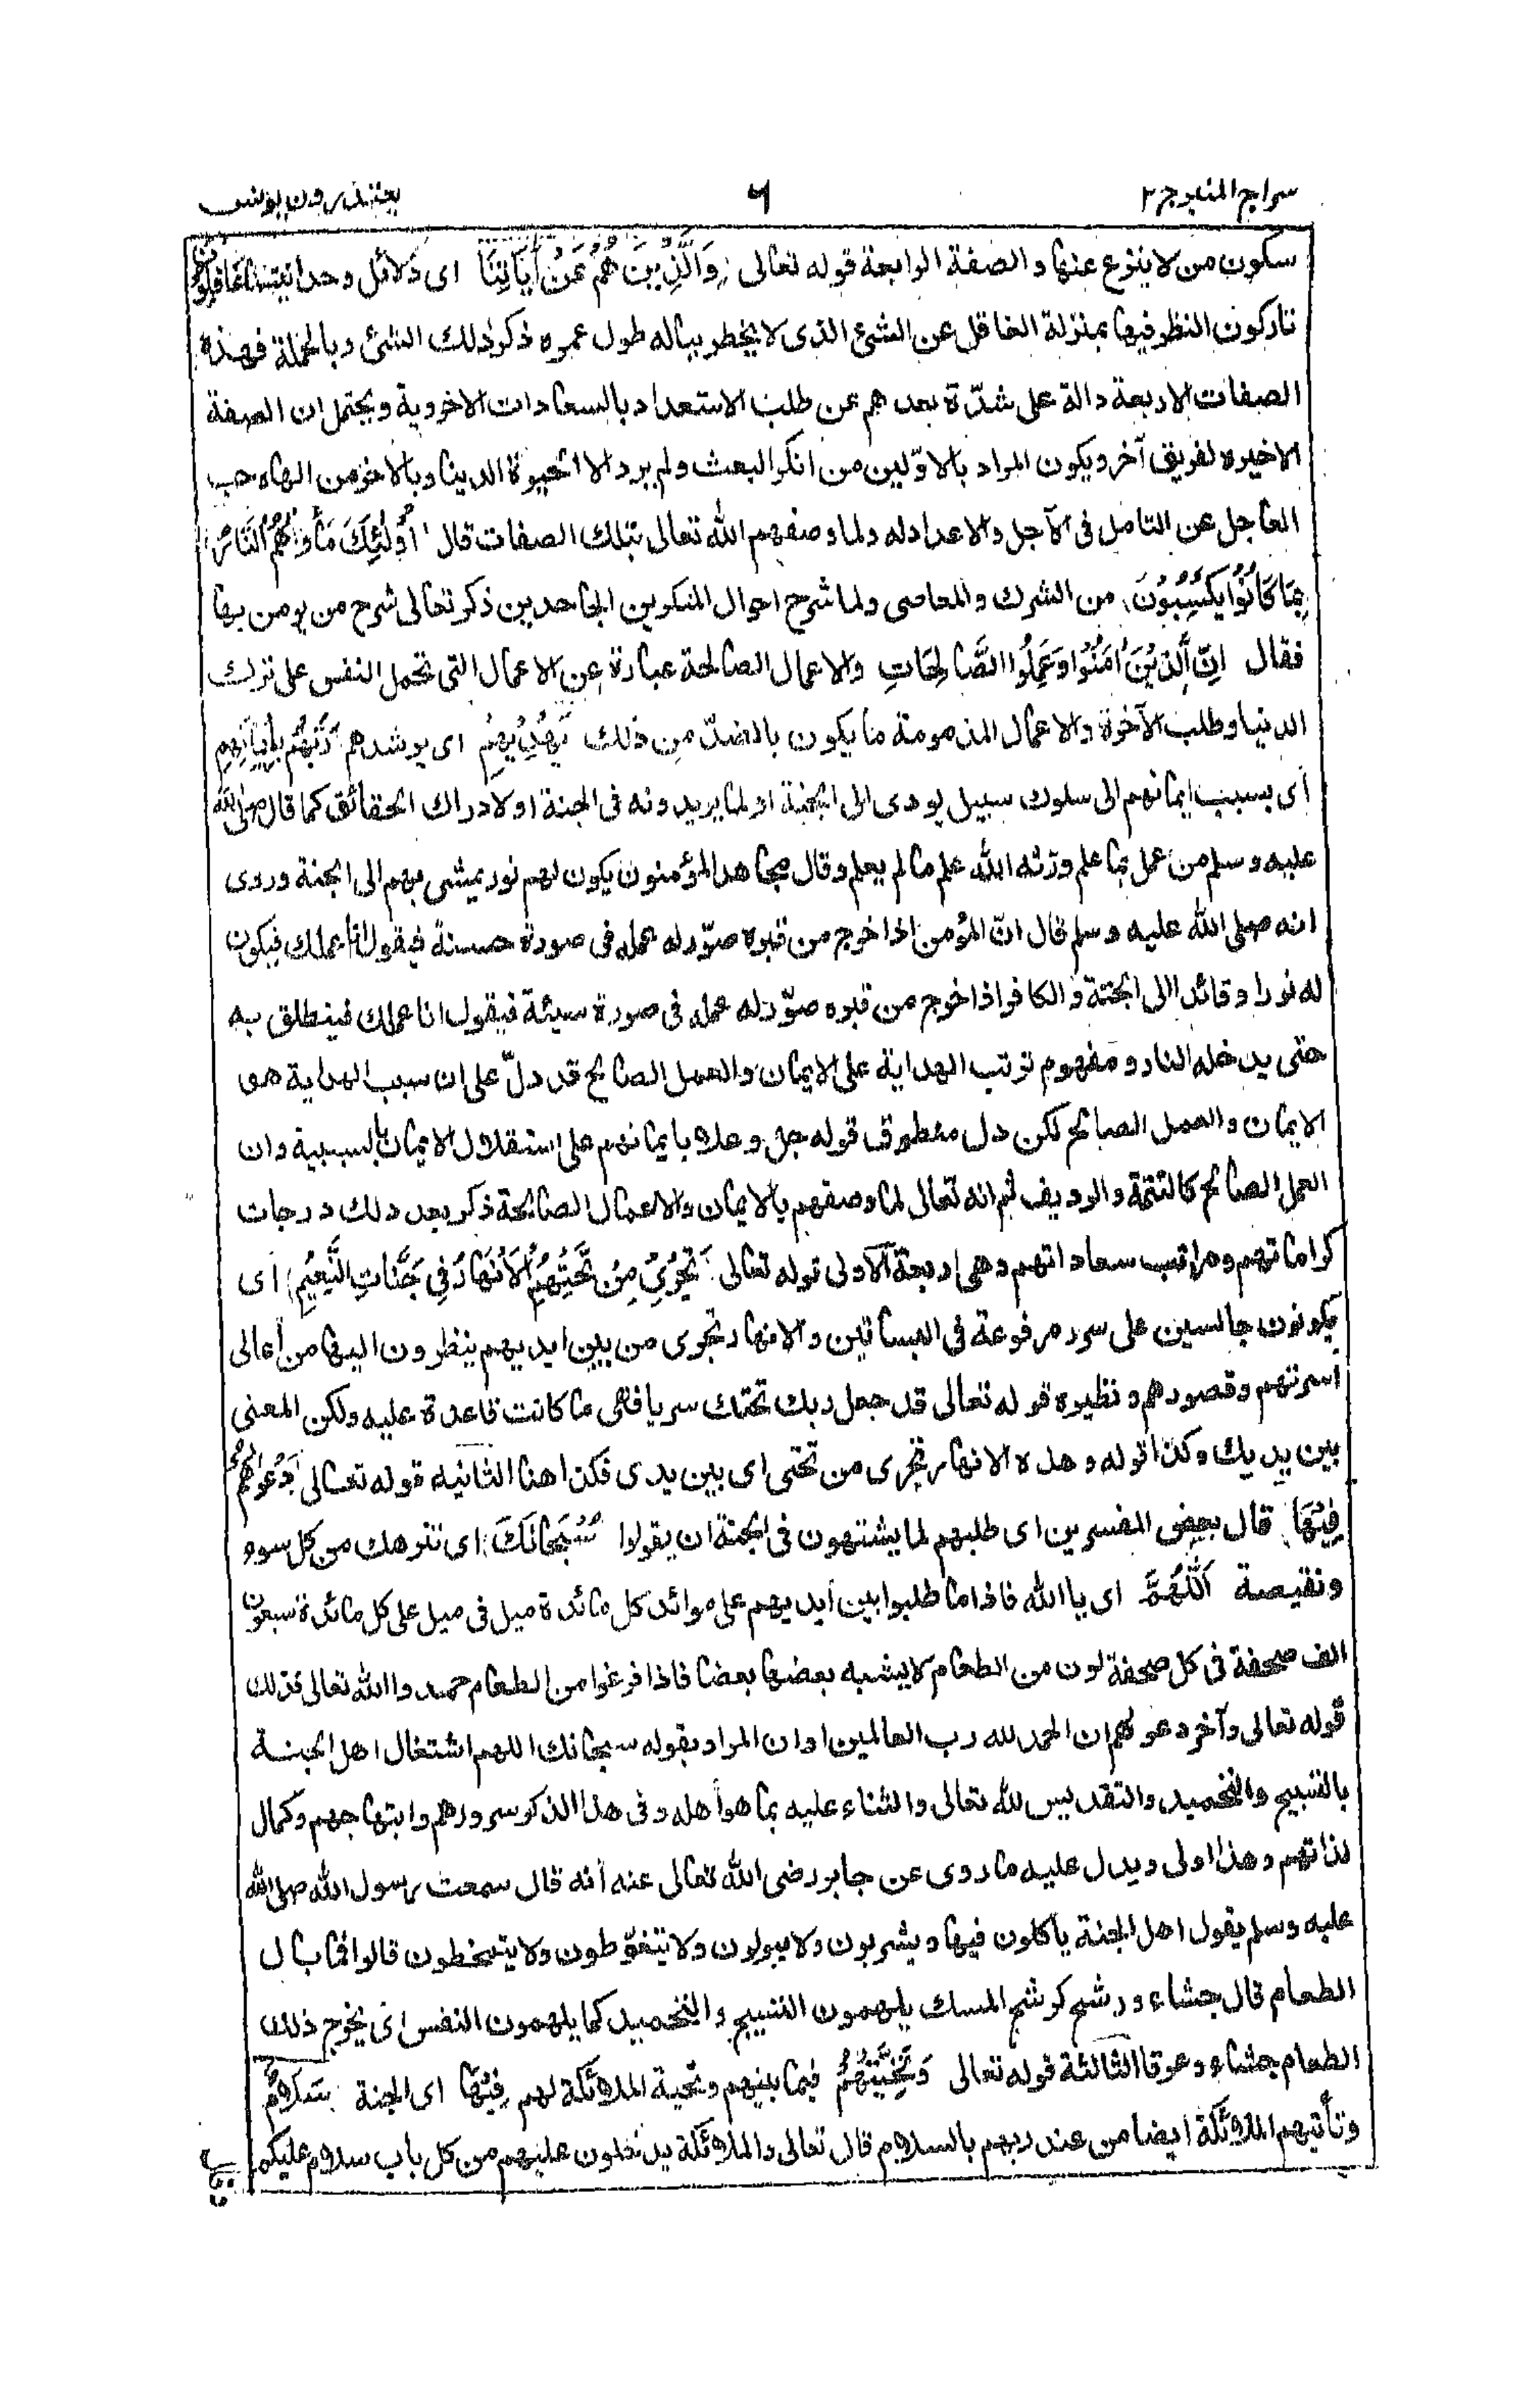 سراج المنير ج ٢ ٦ يعتذرون يونس
سكون من لا ينزع عنها والصفة الرابعة قوله تعالى وَالَّذِيْنَ هُمْ عَنْ أٰيَاتِنَا اى دلائل وحدانيتنا غَافِلُوْنَ
تاركون النظر فيها بمنزلة الغافل عن الشئ الذى لا يخطر بباله طول عمره ذكر ذلك الشئ وبالجملة فهذه
الصفات الاربعة دالة على شدّة بعدهم عن طلب الاستعداد بالسعادات الاخروية ويحتمل ان الصفة
الاخيره لفريق آخر ويكون المراد بالاوّلين من انكر البعث ولم يرد الا الحيوة الدينا وبالاخر من الهاه حب
العاجل عن التامل فى الآجل والاعداد له ولما وصفهم الله تعالى بتلك الصفات قال أُولٰئِكَ مَأْوَاهُمُ النَّارُ
بِمَا كَانُوْا يَكْسِبُوْنَ من الشرك والمعاصى ولما شرح احوال المنكرين الجاحدين ذكر تعالى شرح من يومن بها
فقال اِنَّ الَّذِيْنَ اٰمَنُوْا وَعَمِلُوا الصَّالِحَاتِ والاعمال الصالحة عبارة عن الاعمال التى تحمل النفس على ترك
الدنيا وطلب الآخرة والاعمال المذمومة ما يكون بالضدّ من ذلك يَهْدِيْهِمْ اى يرشدهم رَبُّهُمْ بِاِيْمَانِهِمْ
اى بسبب ايمانهم الى سلوك سبيل يودى الى الجنة او لما يريدونه فى الجنة او لادراك الحقائق كما قال صلى الله
عليه وسلم من عمل بما علم ورّثه الله علم ما لم يعلم وقال مجاهد المؤمنون يكون لهم نور يمشى بهم الى الجنة وروى
انه صلى الله عليه وسلم قال انّ المؤمن اذا خرج من قبره صوّر له عمله فى صورة حسنة فيقول انا عملك فيكون
له نورا وقائدا الى الجنة والكافر اذا خرج من قبره صوّر له عمله فى صورة سيئة فيقول انا عملك فينطلق به
حتى يدخله النار ومفهوم ترتب الهداية على الايمان والعمل الصالح قد دلّ على ان سبب الهداية هو
الايمان والعمل الصالح لكن دل منطوق قوله جل وعلا بايمانهم على استقلال الايمان بالسببية وان
العمل الصالح كالتتمة والرديف ثم انه تعالى لما وصفهم بالايمان والاعمال الصالحة ذكر بعد ذلك درجات
كراماتهم ومراتب سعاداتهم وهى اربعة الاولى قوله تعالى تَجْرِيْ مِنْ تَحْتِهِمُ الْاَنْهَارُ فِيْ جَنَّاتِ النَّعِيْمِ اى
يكونون جالسين على سرر مرفوعة فى البساتين والانهار تجرى من بين ايديهم ينظرون اليها من أعالى
اسرتهم وقصورهم ونظيره قوله تعالى قد جعل ربك تحتك سريا فهى ما كانت قاعدة عليه ولكن المعنى
بين يديك وكذا قوله وهذه الانهار تجرى من تحتى اى بين يدى فكذا هنا الثانيه قوله تعالى دَعْوَاهُمْ
فِيْهَا قال بعض المفسرين اى طلبهم لما يشتهون فى الجنة ان يقولوا سُبْحَانَكَ اى ننزهك من كل سوء
ونقيصة اَللّٰهُمَّ اى يا الله فاذا ما طلبوا بين أيديهم على موائد كل مائدة ميل فى ميل على كل مائدة سبعون
الف صحفة فى كل صحفة لون من الطعام لا يشبه بعضها بعضا فاذا فرغوا من الطعام حمدوا الله تعالى فذلك
قوله تعالى وآخر دعوٰهم ان الحمد لله رب العالمين او ان المراد بقوله سبحانك اللهم اشتغال اهل الجنة
بالتسبيح والتحميد والتقديس لله تعالى والثناء عليه بما هو أهله وفى هذا الذكر سرورهم وابتهاجهم وكمال
لذاتهم وهذا اولى ويدل عليه ما روى عن جابر رضى الله تعالى عنه أنه قال سمعت رسول الله صلى الله
عليه وسلم يقول اهل الجنة ياكلون فيها ويشربون ولا يبولون ولا يتغوّطون ولا يتمخطون قالوا فما بال
الطعام قال جشاء ورشح كرشح المسك يلهمون التسبيح والتحميد كما يلهمون النفس اى يخرج ذلك
الطعام جشاء وعرقا الثالثة قوله تعالى وَتَحِيَّتُهُمْ فيما بينهم وتحية الملائكة لهم فِيْهَا اى الجنة سَلَامٌ
وتأتيهم الملائكة ايضا من عند ربهم بالسلام قال تعالى والملائكة يدخلون عليهم من كل باب سلام عليكم